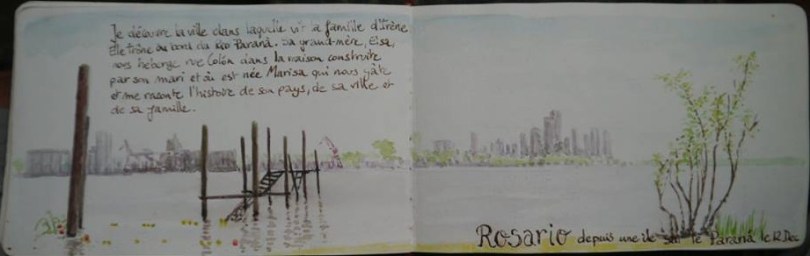 Je découvre la ville dans laquelle vit la famille d'Irène
Elle trône au bord du rio Paranà. Sa grand-mère, Elsa,
nous héberge rue Colón dans la maison construite
par son mari et où est née Marisa qui nous gâte
et me raconte l'histoire de son pays, de sa ville et
de sa famille.
Rosario depuis une île sur le Paranà le 12 Dec